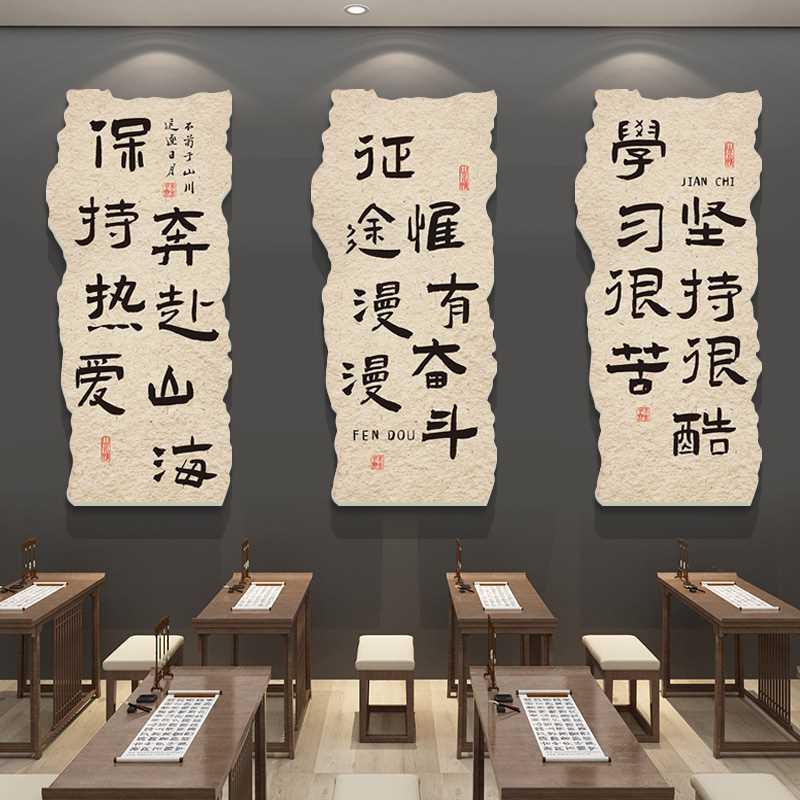 保持热爱
奔赴山海
不苟于山川
征途漫漫
惟有奋斗
FEN DOU
學习很苦
坚持很酷
JIAN CHI